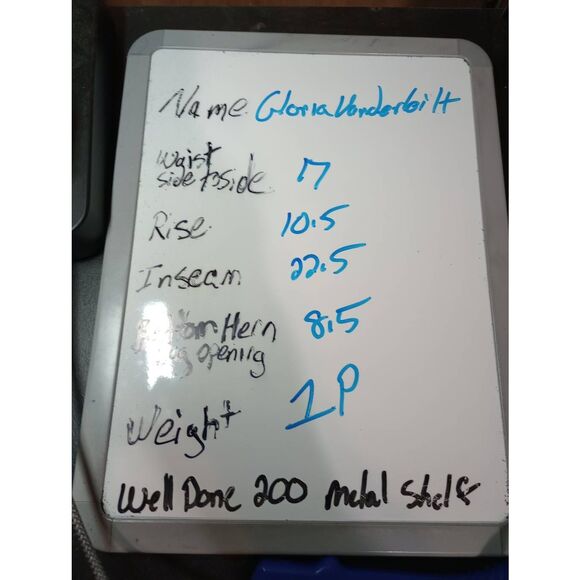 Name Gloria Vanderbilt
Waist
side to side 17
Rise 10.5
Inseam 22.5
Bottom Hem 8.5
opening
Weight 1P
Well Done 200 metal Shelf